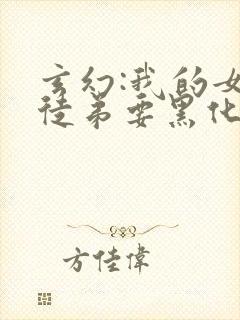 玄幻:我的女
徒弟要黑化
方佳偉